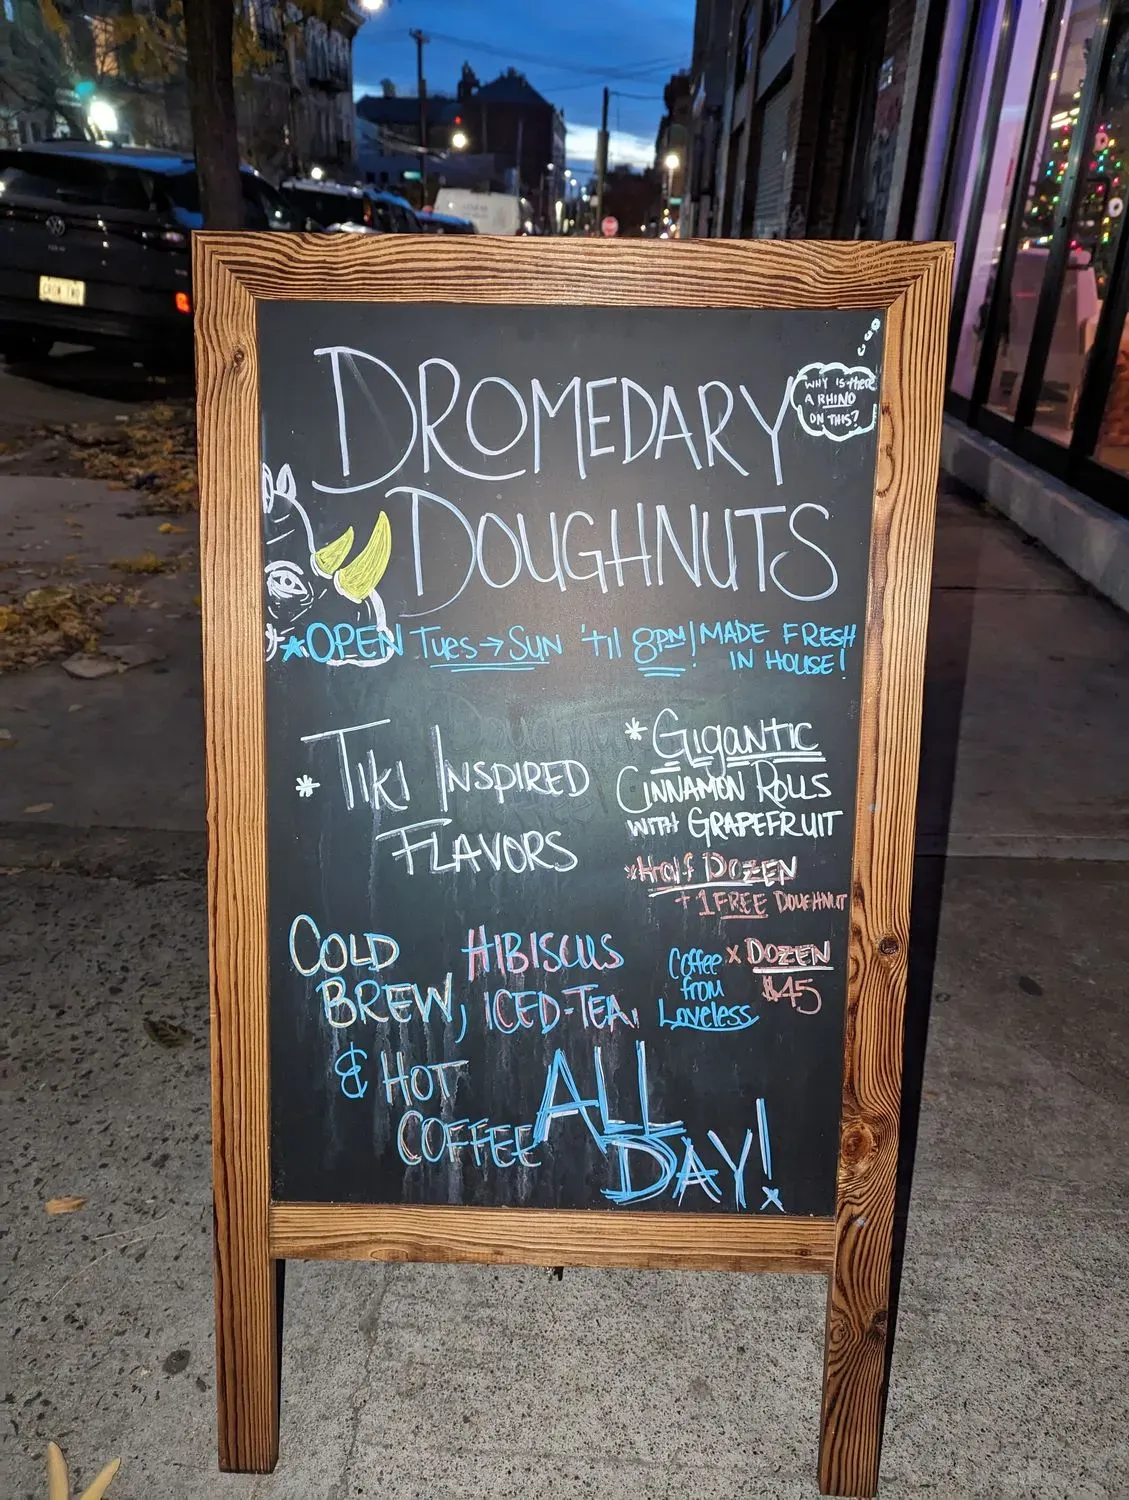 DROMEDARY
DOUGHNUTS
WHY IS there
A RHINO
ON THIS?
*OPEN Tues→Sun 'til 8PM! MADE FRESH
IN HOUSE!
* TIKI INSPIRED
FLAVORS
* GIGANTIC
CINNAMON ROLLS
WITH GRAPEFRUIT
x Half DOZEN
+ 1 FREE DOUGHNUT
x DOZEN
$45
Coffee
from
Loveless
COLD
BREW,
HIBISCUS
ICED-TEA,
& HOT
COFFEE
ALL
DAY!